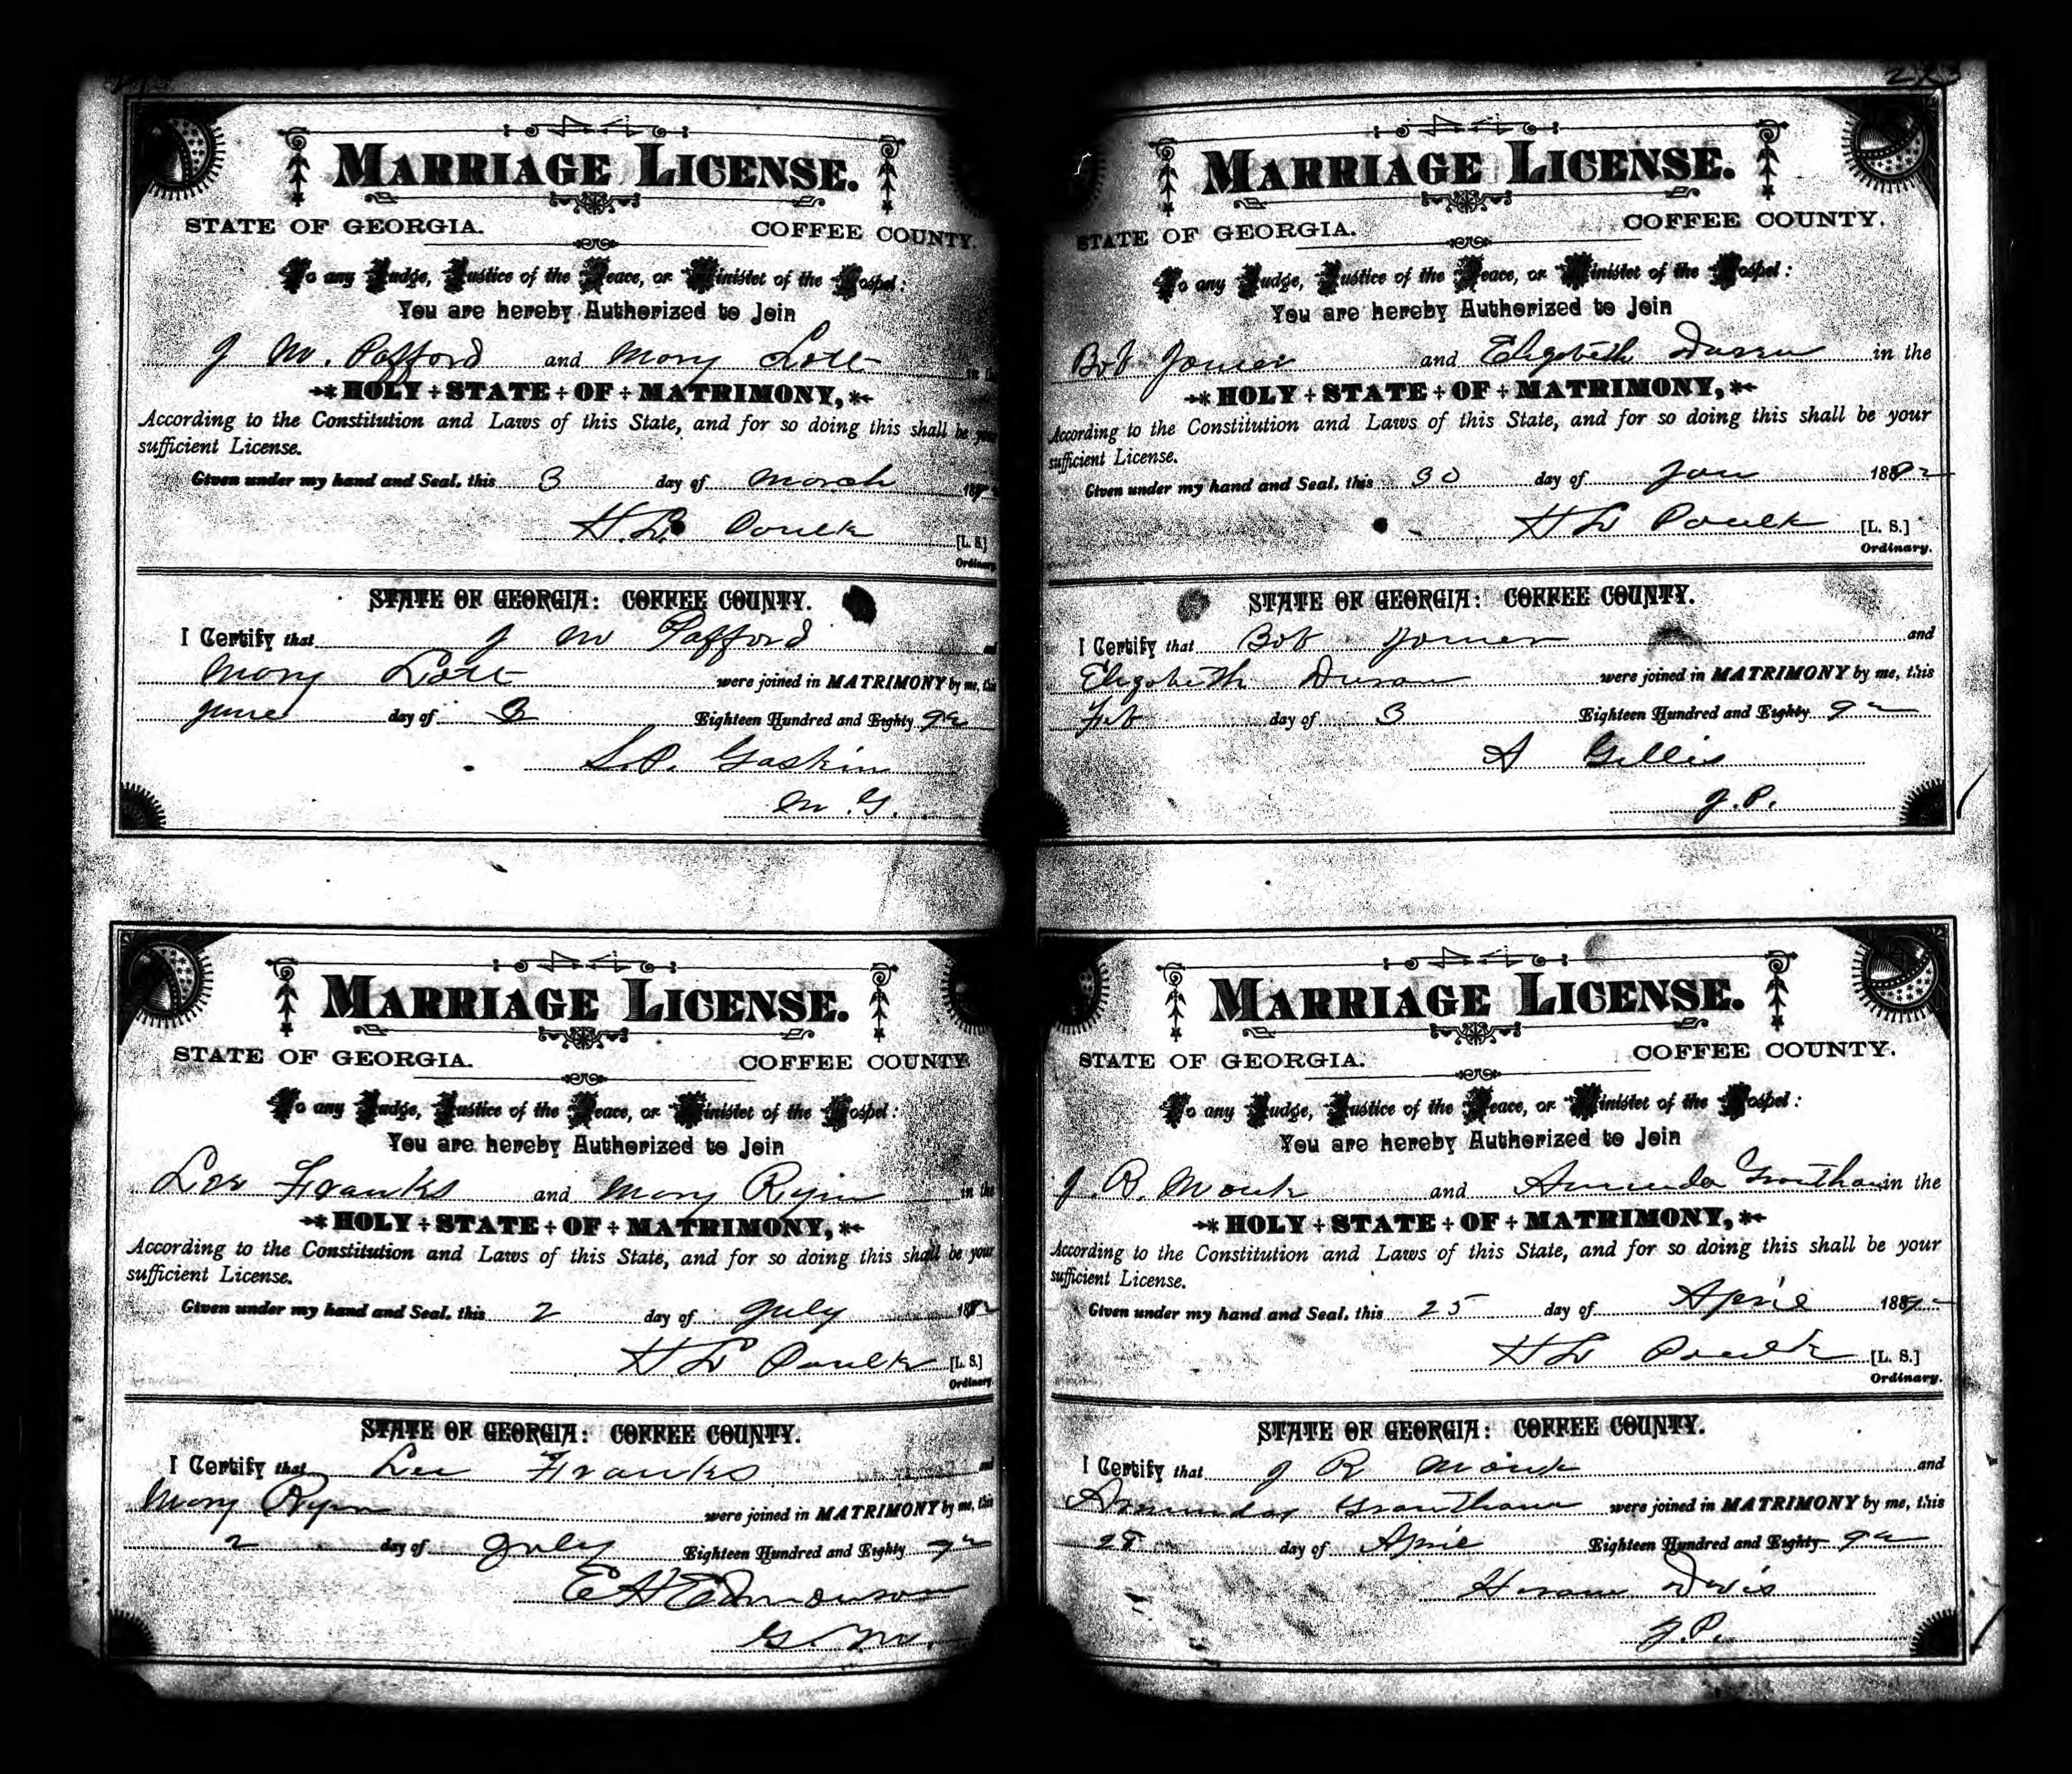 MARRIAGE LICENSE.
STATE OF GEORGIA. COFFEE COUNTY.
To any Judge, Justice of the Peace, or Minister of the Gospel:
You are hereby Authorized to Join
J M. Pafford and Mary Lott in the
HOLY + STATE + OF + MATRIMONY,
According to the Constitution and Laws of this State, and for so doing this shall be your
sufficient License.
Given under my hand and Seal, this 3 day of March
H. L. Paulk [L. S.]
Ordinary.
STATE OF GEORGIA: COFFEE COUNTY.
I Certify that J M Pafford and
Mary Lott were joined in MATRIMONY by me, this
June day of 3 Eighteen Hundred and Eighty 92
S.P. Gaskin
M. G.
MARRIAGE LICENSE.
STATE OF GEORGIA. COFFEE COUNTY.
To any Judge, Justice of the Peace, or Minister of the Gospel:
You are hereby Authorized to Join
Bob and Elizabeth in the
HOLY + STATE + OF + MATRIMONY,
According to the Constitution and Laws of this State, and for so doing this shall be your
sufficient License.
Given under my hand and Seal, this 30 day of Jan 1892
H L Paulk [L. S.]
Ordinary.
STATE OF GEORGIA: COFFEE COUNTY.
I Certify that Bob and
Elizabeth were joined in MATRIMONY by me, this
Feb day of 3 Eighteen Hundred and Eighty 92
A Gillis
J. P.
MARRIAGE LICENSE.
STATE OF GEORGIA. COFFEE COUNTY
To any Judge, Justice of the Peace, or Minister of the Gospel:
You are hereby Authorized to Join
Lee Franks and Mary Ryan in the
HOLY + STATE + OF + MATRIMONY,
According to the Constitution and Laws of this State, and for so doing this shall be your
sufficient License.
Given under my hand and Seal, this 2 day of July 1892
H L Paulk [L. S.]
Ordinary.
STATE OF GEORGIA: COFFEE COUNTY.
I Certify that Lee Franks and
Mary Ryan were joined in MATRIMONY by me, this
2 day of July Eighteen Hundred and Eighty 92
E H Edmonson
G. M.
MARRIAGE LICENSE.
STATE OF GEORGIA. COFFEE COUNTY.
To any Judge, Justice of the Peace, or Minister of the Gospel:
You are hereby Authorized to Join
J. R. Monk and Amanda Grantham in the
HOLY + STATE + OF + MATRIMONY,
According to the Constitution and Laws of this State, and for so doing this shall be your
sufficient License.
Given under my hand and Seal, this 25 day of April 1892
H L Paulk [L. S.]
Ordinary.
STATE OF GEORGIA: COFFEE COUNTY.
I Certify that J R Monk and
Amanda Grantham were joined in MATRIMONY by me, this
28 day of April Eighteen Hundred and Eighty 92
Hiram Davis
J. P.